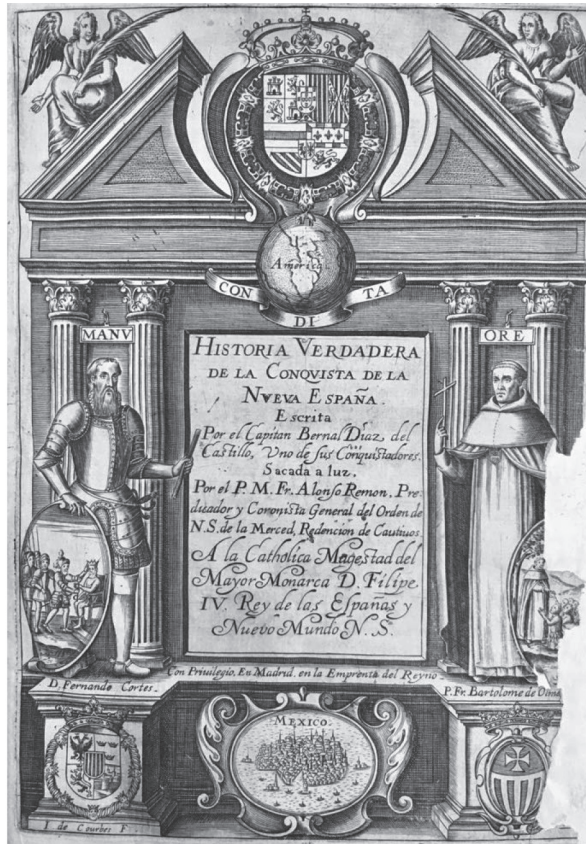 America
CON DI TA
MANV
ORE
HISTORIA VERDADERA
DE LA CONQVISTA DE LA
NVEVA ESPAÑA.
Escrita
Por el Capitan Bernal Diaz, del
Castillo, Vno de sus Conquistadores.
Sacada a luz,
Por el P. M. Fr. Alonso Remon, Pre-
dicador y Coronista General del Orden de
N. S. de la Merced, Redencion de Cautivos.
A la Catholica Magestad del
Mayor Monarca D. Filipe.
IV. Rey de las Españas y
Nuevo Mundo N. S.
Con Privilegio, En Madrid, en la Emprenta del Reyno.
D. Fernando Cortes.
P. Fr. Bartolome de
MEXICO.
I. de Courbes F.